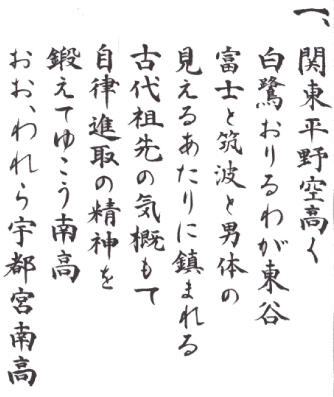 一、関東平野空高く
白鷺おりるわが東谷
富士と筑波と男体の
見えるあたりに鎮まれる
古代祖先の気概もて
自律進取の精神を
鍛えてゆこう南高
おお、われら宇都宮南高